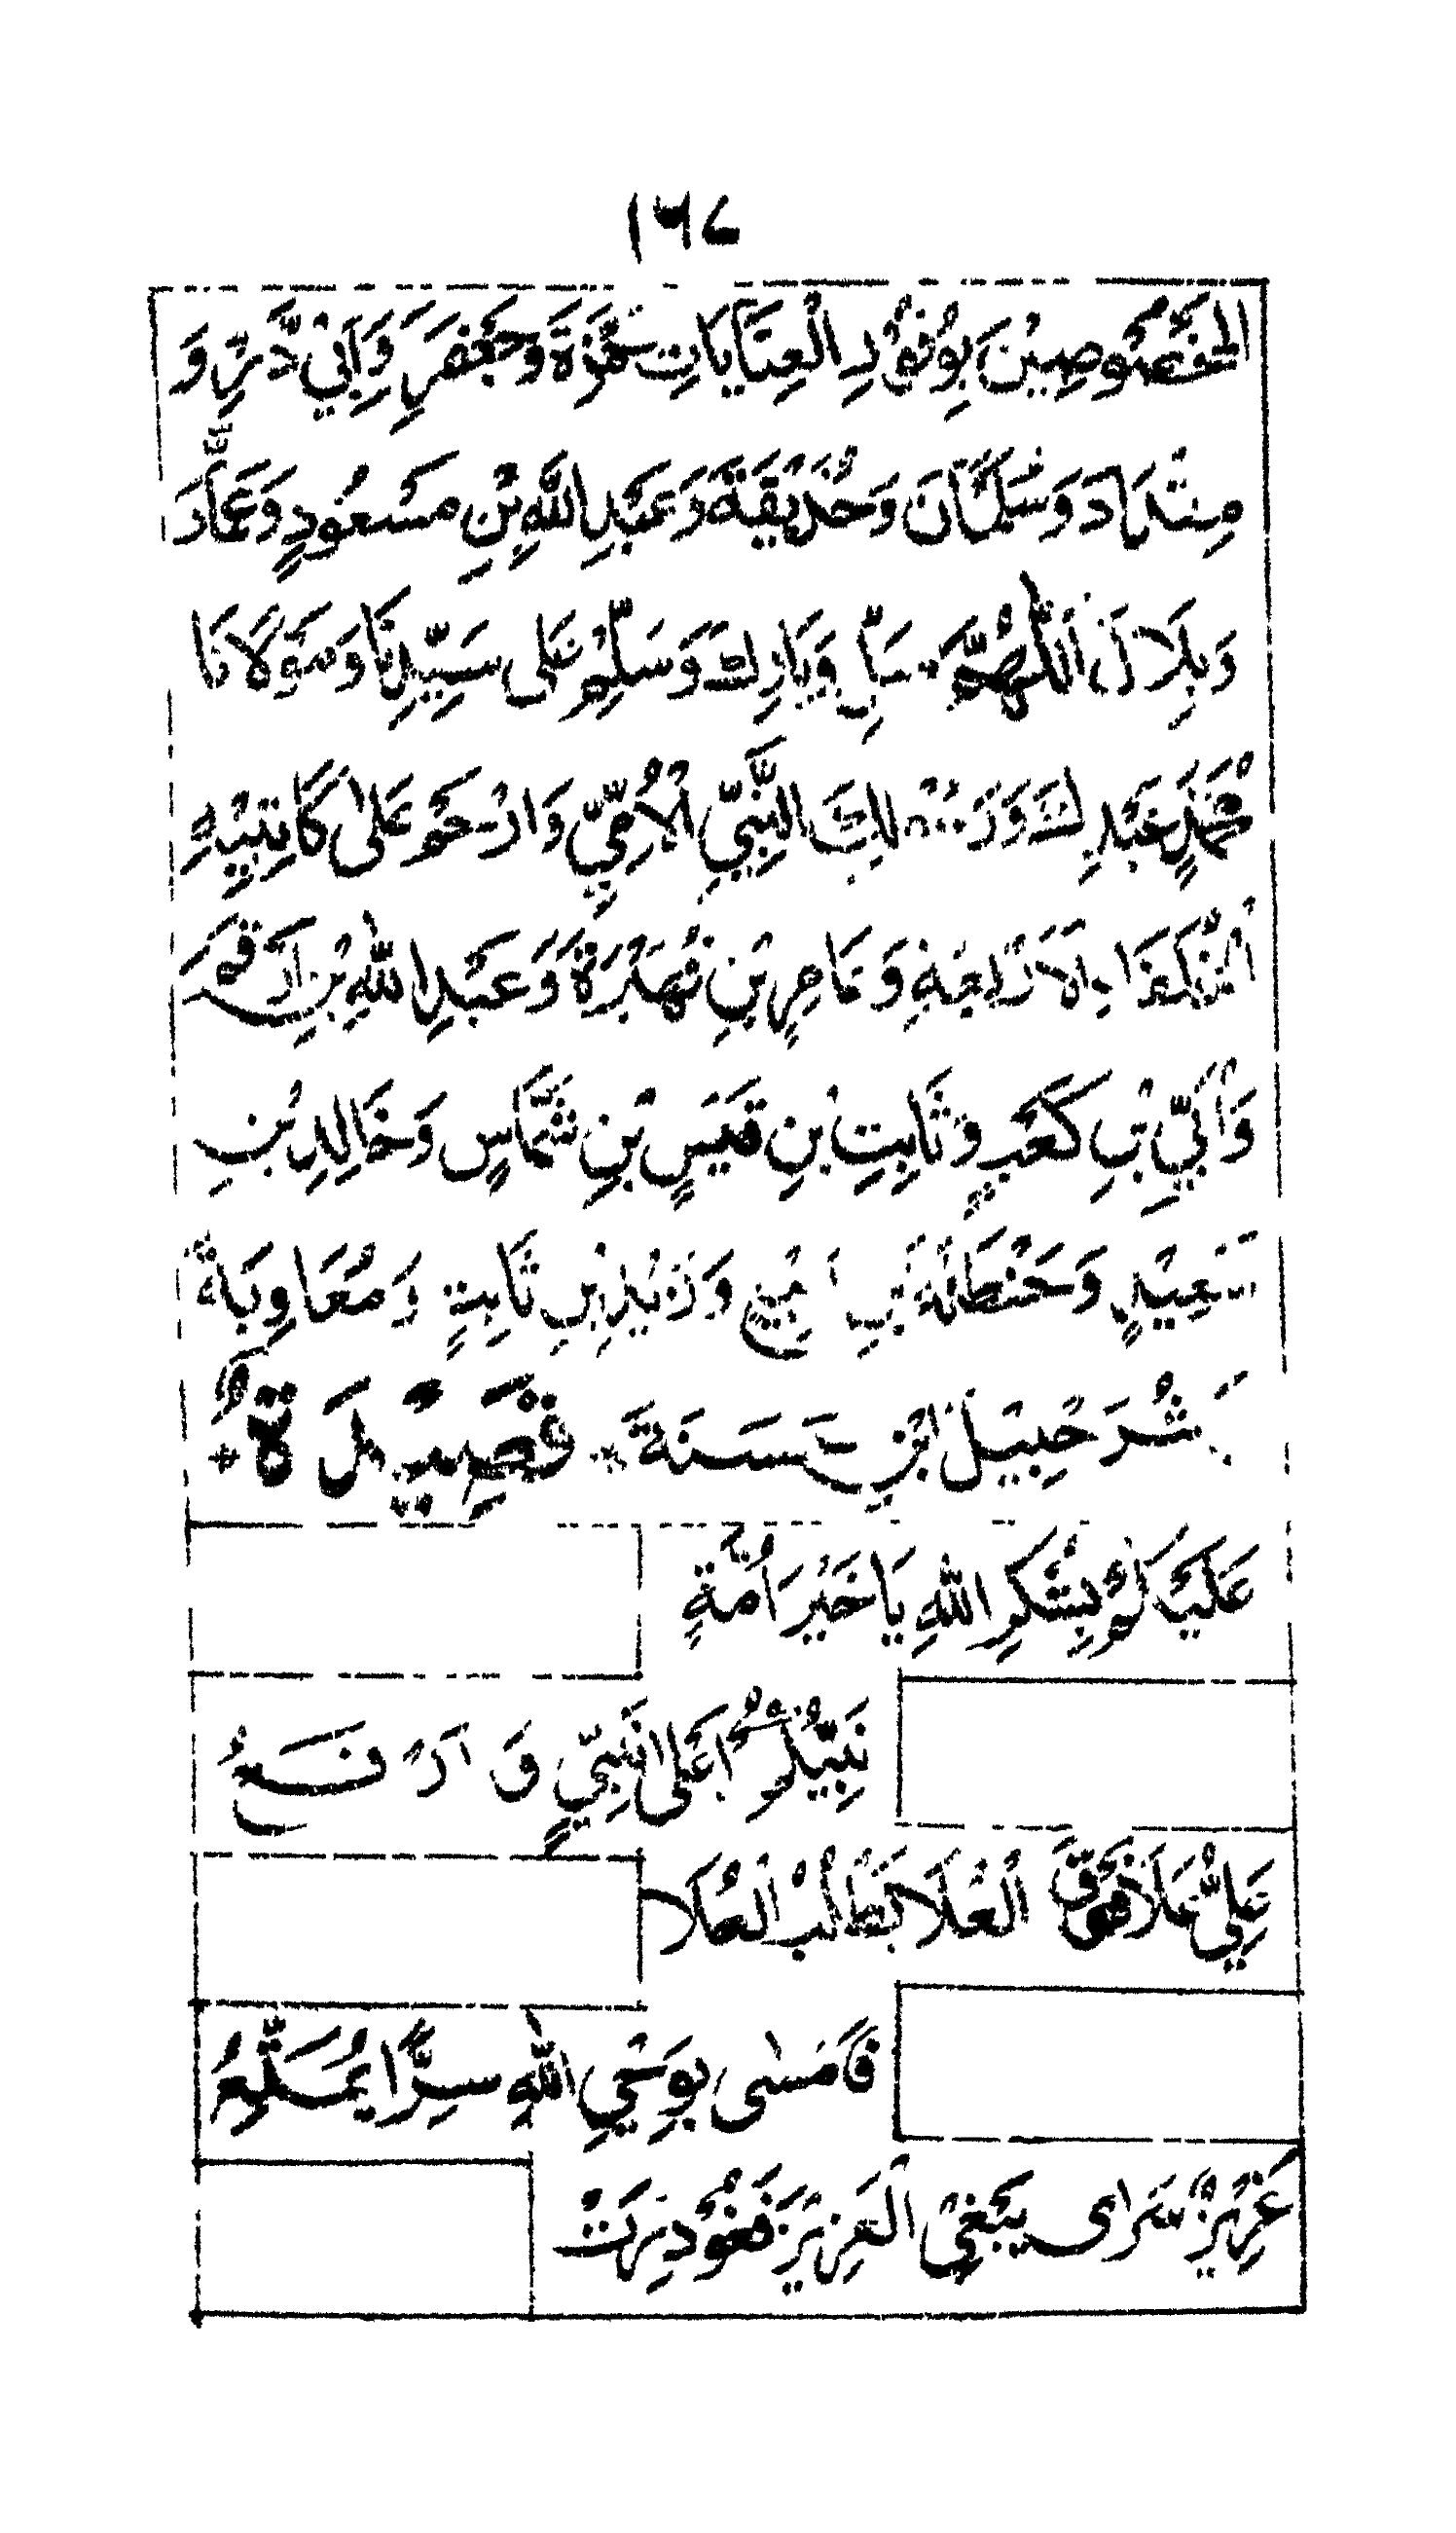 ١٦٧
المَخْصُوصِيْنَ بِوُفُوْدِ الْعِنَايَاتِ حَمْزَةَ وَجَعْفَرَ وَاَبِيْ ذَرٍّ وَ
مِقْدَادَ وَسَلْمَانَ وَحُذَيْفَةَ وَعَبْدِ اللّٰهِ بْنِ مَسْعُوْدٍ وَعَمَّارَ
وَبِلَالَ اَللّٰهُمَّ صَلِّ وَبَارِكْ وَسَلِّمْ عَلٰى سَيِّدِنَا وَمَوْلَانَا
مُحَمَّدٍ عَبْدِكَ وَرَسُوْلِكَ النَّبِيِّ الْاُمِّيِّ وَارْحَمْ عَلٰى كَاتِبِيْهِ
الْخُلَفَاءِ الْاَرْبَعَةِ وَعَامِرِ بْنِ فُهَيْرَةَ وَعَبْدِ اللّٰهِ بْنِ اَرْقَمَ
وَاُبَيِّ بْنِ كَعْبٍ وَثَابِتِ بْنِ قَيْسِ بْنِ شَمَّاسٍ وَخَالِدِ بْنِ
سَعِيْدٍ وَحَنْظَلَةَ بْنِ رَبِيْعٍ وَزَيْدِ بْنِ ثَابِتٍ وَمُعَاوِيَةَ
وَشُرَحْبِيْلَ ابْنِ حَسَنَةَ * قَصِيْدَةٌ *
عَلَيْكُمْ بِشُكْرِ اللّٰهِ يَا خَيْرَ اُمَّةٍ
نَبِيُّكُمْ اَعْلٰى نَبِيٍّ وَاَرْفَعُ
عَلِيٌّ عَلَا فَوْقَ الْعُلَا يَطْلُبُ الْعُلَا
فَاَمْسٰى بِوَحْيِ اللّٰهِ سِرًّا يُمَتَّعُ
عَزِيْزٌ سَرٰى يَبْغِى الْعَزِيْزَ فَغُوْدِرَتْ